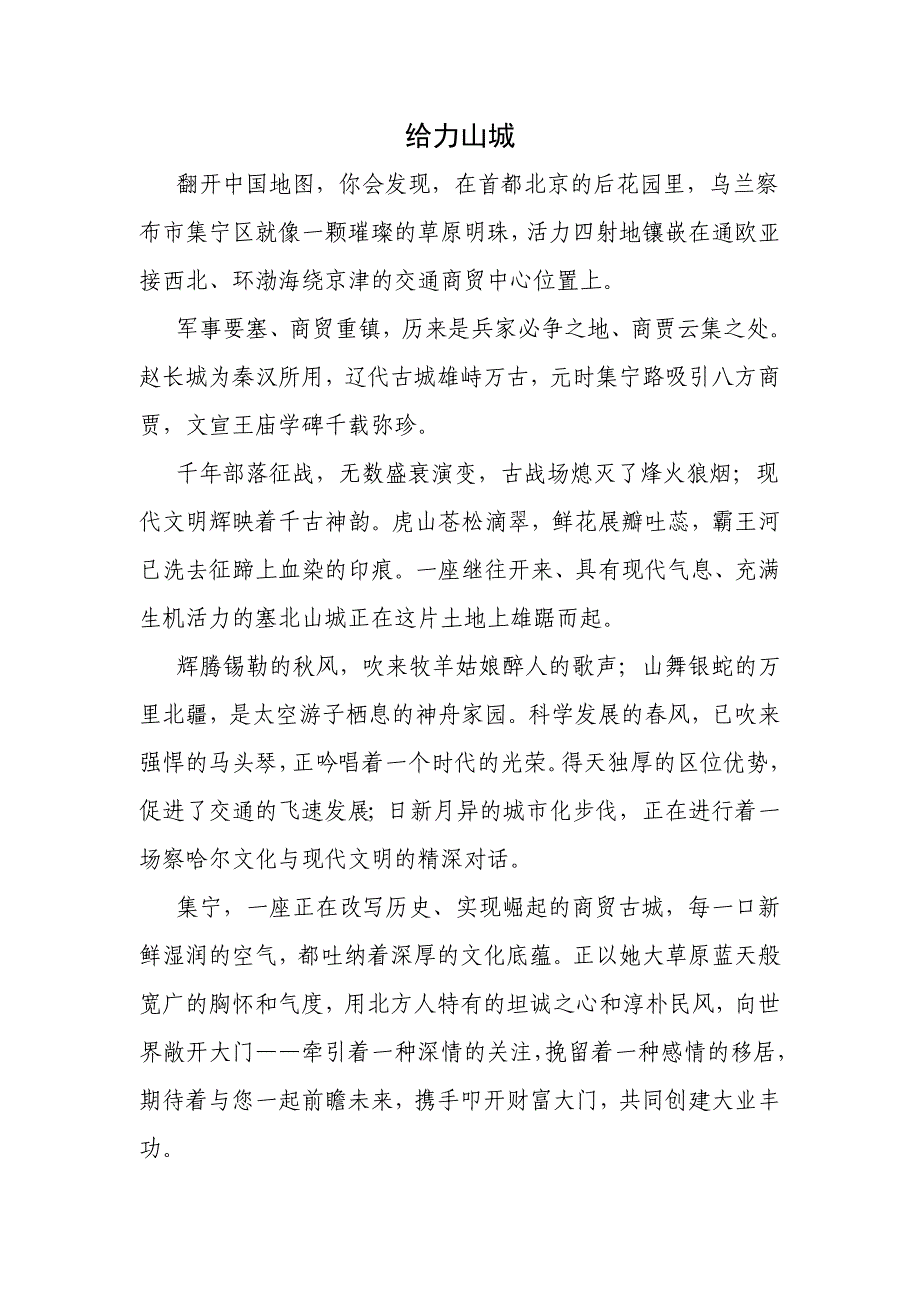 给力山城
翻开中国地图，你会发现，在首都北京的后花园里，乌兰察
布市集宁区就像一颗璀璨的草原明珠，活力四射地镶嵌在通欧亚
接西北、环渤海绕京津的交通商贸中心位置上。
军事要塞、商贸重镇，历来是兵家必争之地、商贾云集之处。
赵长城为秦汉所用，辽代古城雄峙万古，元时集宁路吸引八方商
贾，文宣王庙学碑千载弥珍。
千年部落征战，无数盛衰演变，古战场熄灭了烽火狼烟；现
代文明辉映着千古神韵。虎山苍松滴翠，鲜花展瓣吐蕊，霸王河
已洗去征蹄上血染的印痕。一座继往开来、具有现代气息、充满
生机活力的塞北山城正在这片土地上雄踞而起。
辉腾锡勒的秋风，吹来牧羊姑娘醉人的歌声；山舞银蛇的万
里北疆，是太空游子栖息的神舟家园。科学发展的春风，已吹来
强悍的马头琴，正吟唱着一个时代的光荣。得天独厚的区位优势，
促进了交通的飞速发展；日新月异的城市化步伐，正在进行着一
场察哈尔文化与现代文明的精深对话。
集宁，一座正在改写历史、实现崛起的商贸古城，每一口新
鲜湿润的空气，都吐纳着深厚的文化底蕴。正以她大草原蓝天般
宽广的胸怀和气度，用北方人特有的坦诚之心和淳朴民风，向世
界敞开大门——牵引着一种深情的关注，挽留着一种感情的移居，
期待着与您一起前瞻未来，携手叩开财富大门，共同创建大业丰
功。